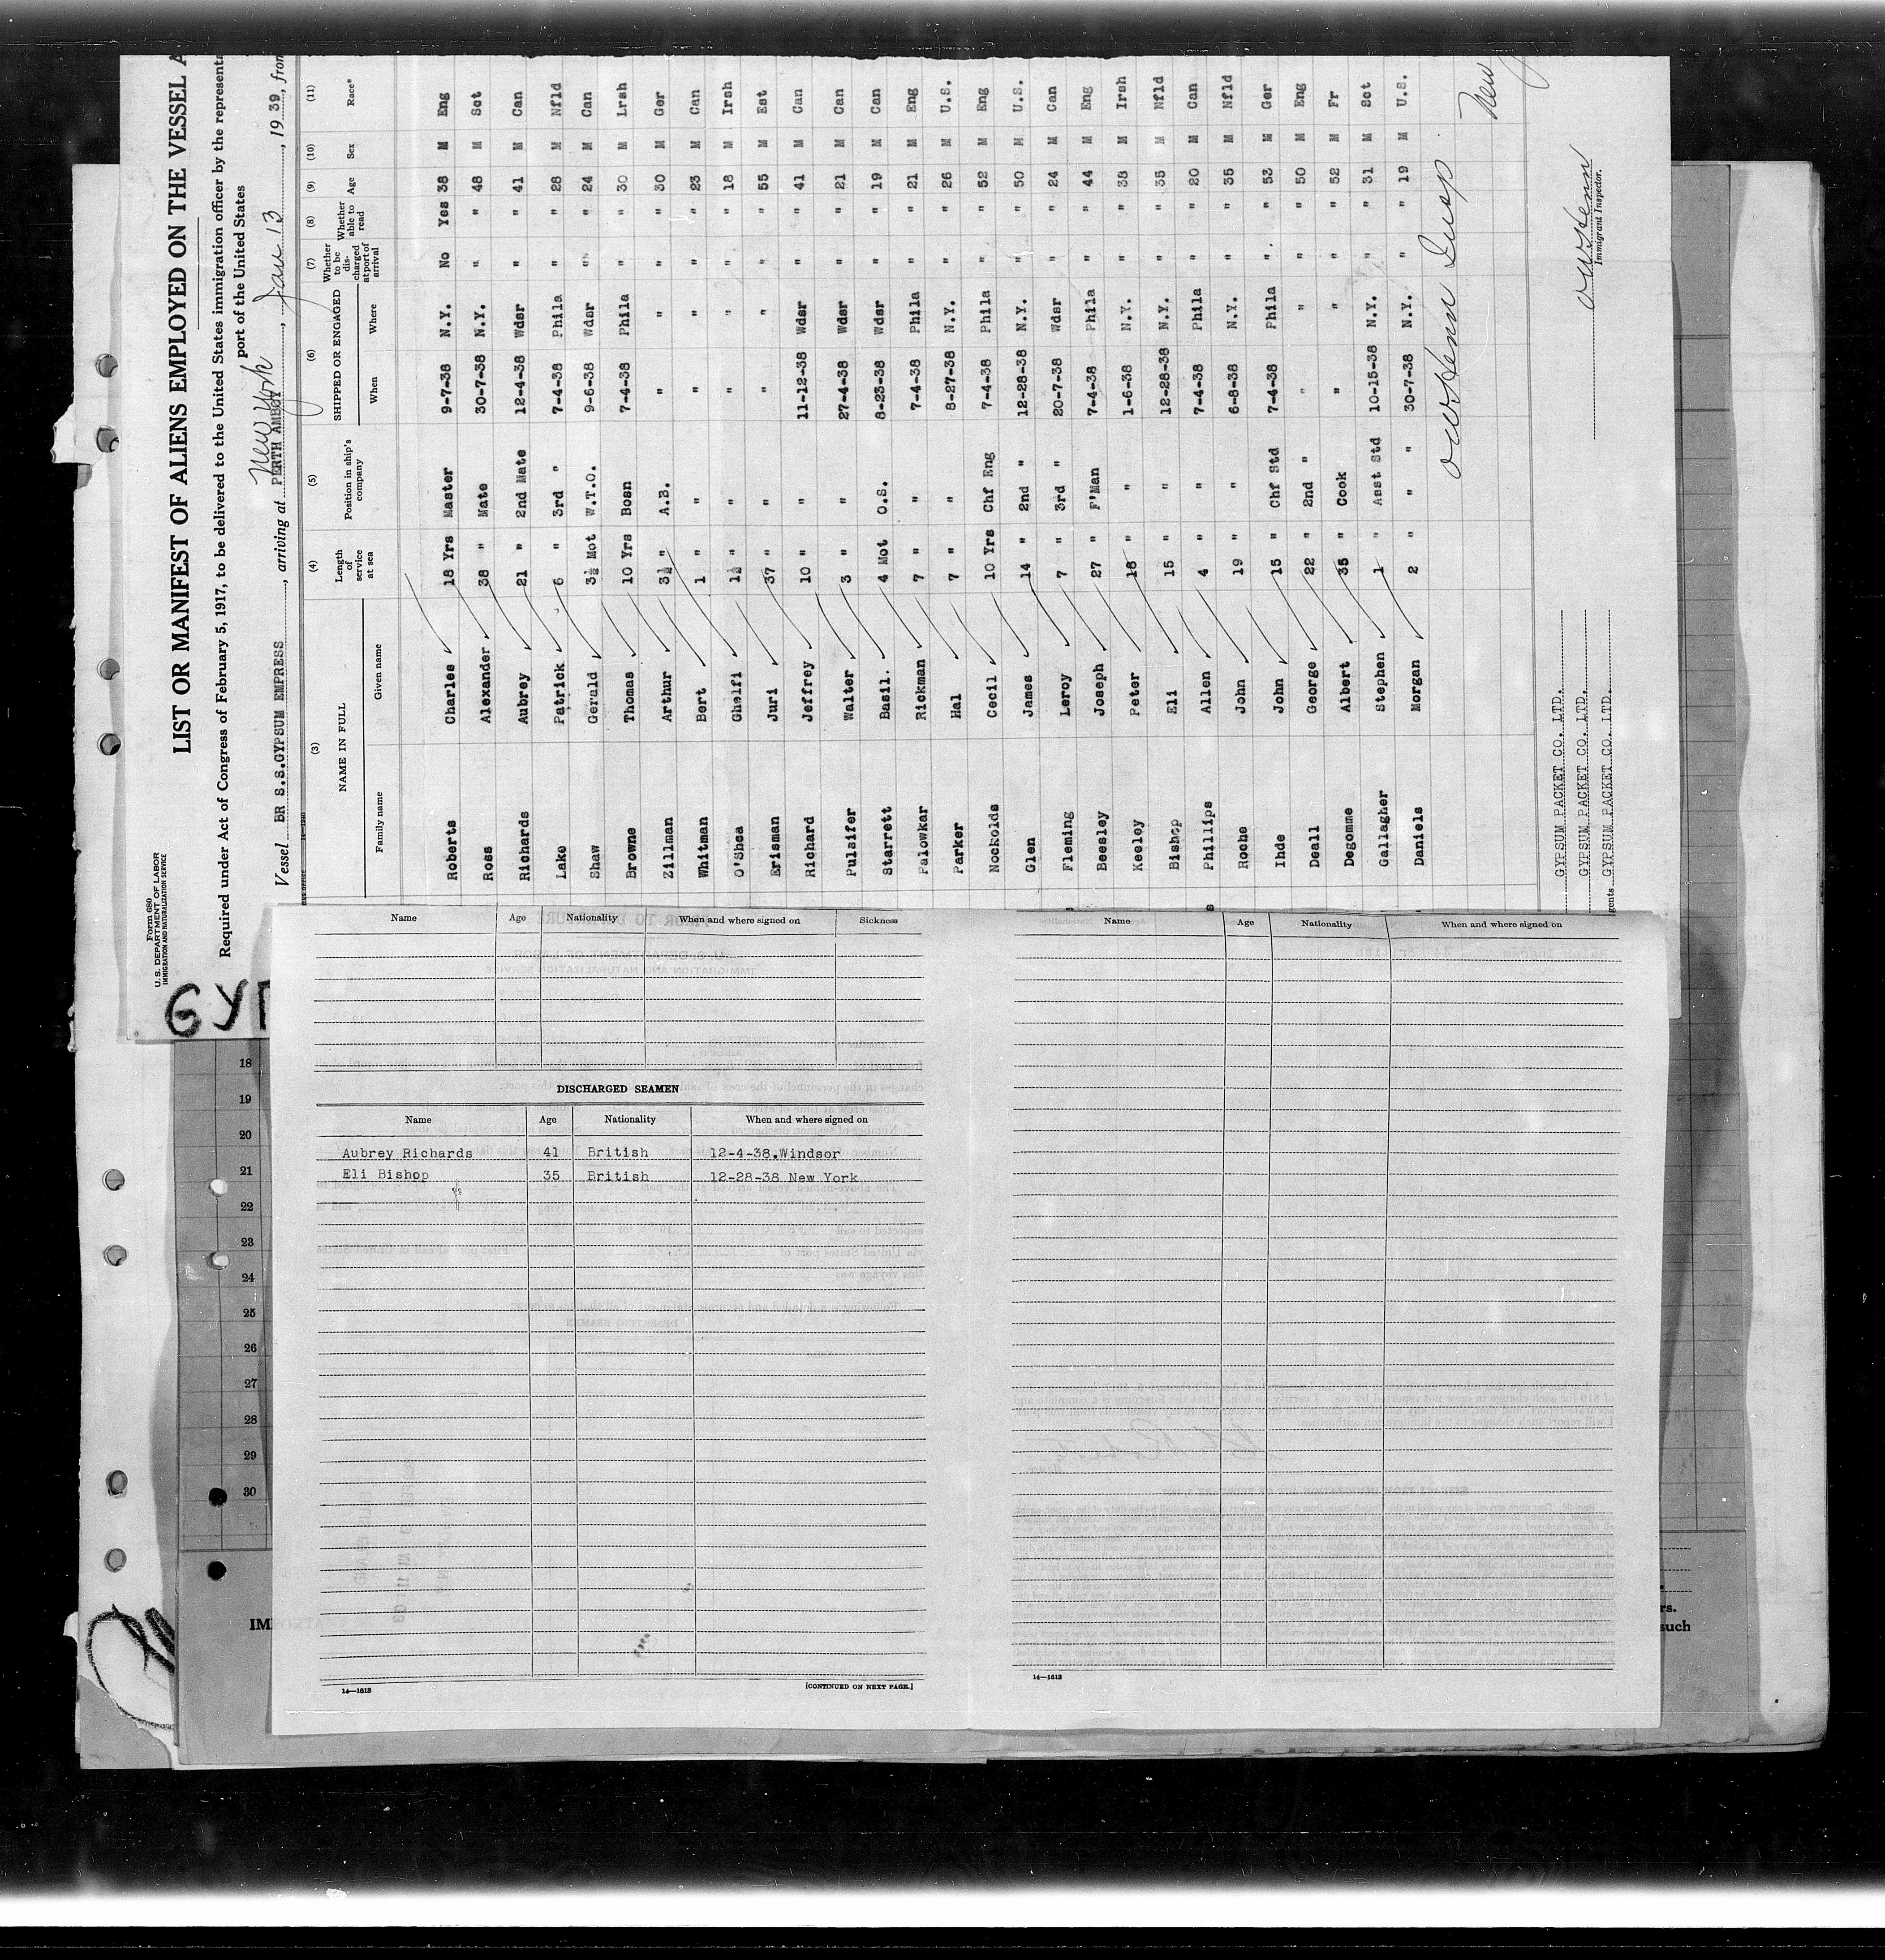 Form 680
U. S. DEPARTMENT OF LABOR
IMMIGRATION AND NATURALIZATION SERVICE
LIST OR MANIFEST OF ALIENS EMPLOYED ON THE VESSEL A
Required under Act of Congress of February 5, 1917, to be delivered to the United States immigration officer by the representa
port of the United States
New York
Vessel BR S.S.GYPSUM EMPRESS, arriving at PERTH AMBOY, Jan 13, 1939, from
(3) (4) (5) (6) (7) (8) (9) (10) (11)
NAME IN FULL Length of service at sea Position in ship's company SHIPPED OR ENGAGED Whether to be discharged at port of arrival Whether able to read Age Sex Race*
Family name Given name When Where
Roberts Charles 18 Yrs Master 9-7-38 N.Y. No Yes 38 M Eng
Ross Alexander 38 " Mate 30-7-38 N.Y. " " 48 M Sct
Richards Aubrey 21 " 2nd Mate 12-4-38 Wdsr " " 41 M Can
Lake Patrick 6 " 3rd " 7-4-38 Phila " " 28 M Nfld
Shaw Gerald 3½ Mot W.T.O. 9-6-38 Wdsr " " 24 M Can
Browne Thomas 10 Yrs Bosn 7-4-38 Phila " " 30 M Lrsh
Zillman Arthur 3½ " A.B. " " " " 30 M Ger
Whitman Bert 1 " " " " " " 23 M Can
O'Shea Ghelfi 1½ " " " " " " 18 M Irsh
Erisman Juri 37 " " " " " " 55 M Est
Richard Jeffrey 10 " " 11-12-38 Wdsr " " 41 M Can
Pulsifer Walter 3 " " 27-4-38 Wdsr " " 21 M Can
Starrett Basil. 4 Mot O.S. 8-23-38 Wdsr " " 19 M Can
Palowkar Rickman 7 " " 7-4-38 Phila " " 21 M Eng
Parker Hal 7 " " 8-27-38 N.Y. " " 26 M U.S.
Nockolds Cecil 10 Yrs Chf Eng 7-4-38 Phila " " 52 M Eng
Glen James 14 " 2nd " 12-28-38 N.Y. " " 50 M U.S.
Fleming Leroy 7 " 3rd " 20-7-38 Wdsr " " 24 M Can
Beesley Joseph 27 " F'Man 7-4-38 Phila " " 44 M Eng
Keeley Peter 18 " " 1-6-38 N.Y. " " 38 M Irsh
Bishop Eli 15 " " 12-28-38 N.Y. " " 35 M Nfld
Phillips Allen 4 " " 7-4-38 Phila " " 20 M Can
Roche John 19 " " 6-8-38 N.Y. " " 35 M Nfld
Ihde John 15 " Chf Std 7-4-38 Phila " " 53 M Ger
Deall George 22 " 2nd " " " " " 50 M Eng
Degomme Albert 35 " Cook " " " " 52 M Fr
Gallagher Stephen 1 " Asst Std 10-15-38 N.Y. " " 31 M Sct
Daniels Morgan 2 " " " 30-7-38 N.Y. " " 19 M U.S.
Insp
New
Immigrant Inspector.
GYPSUM PACKET CO. LTD.
GYPSUM PACKET CO. LTD.
gents GYPSUM PACKET CO. LTD.
GYP
Name Age Nationality When and where signed on Sickness
DISCHARGED SEAMEN
Name Age Nationality When and where signed on
Aubrey Richards 41 British 12-4-38.Windsor
Eli Bishop 35 British 12-28-38 New York
14—1613 [CONTINUED ON NEXT PAGE.]
Name Age Nationality When and where signed on
14—1613
18
19
20
21
22
23
24
25
26
27
28
29
30
IM
rs.
such